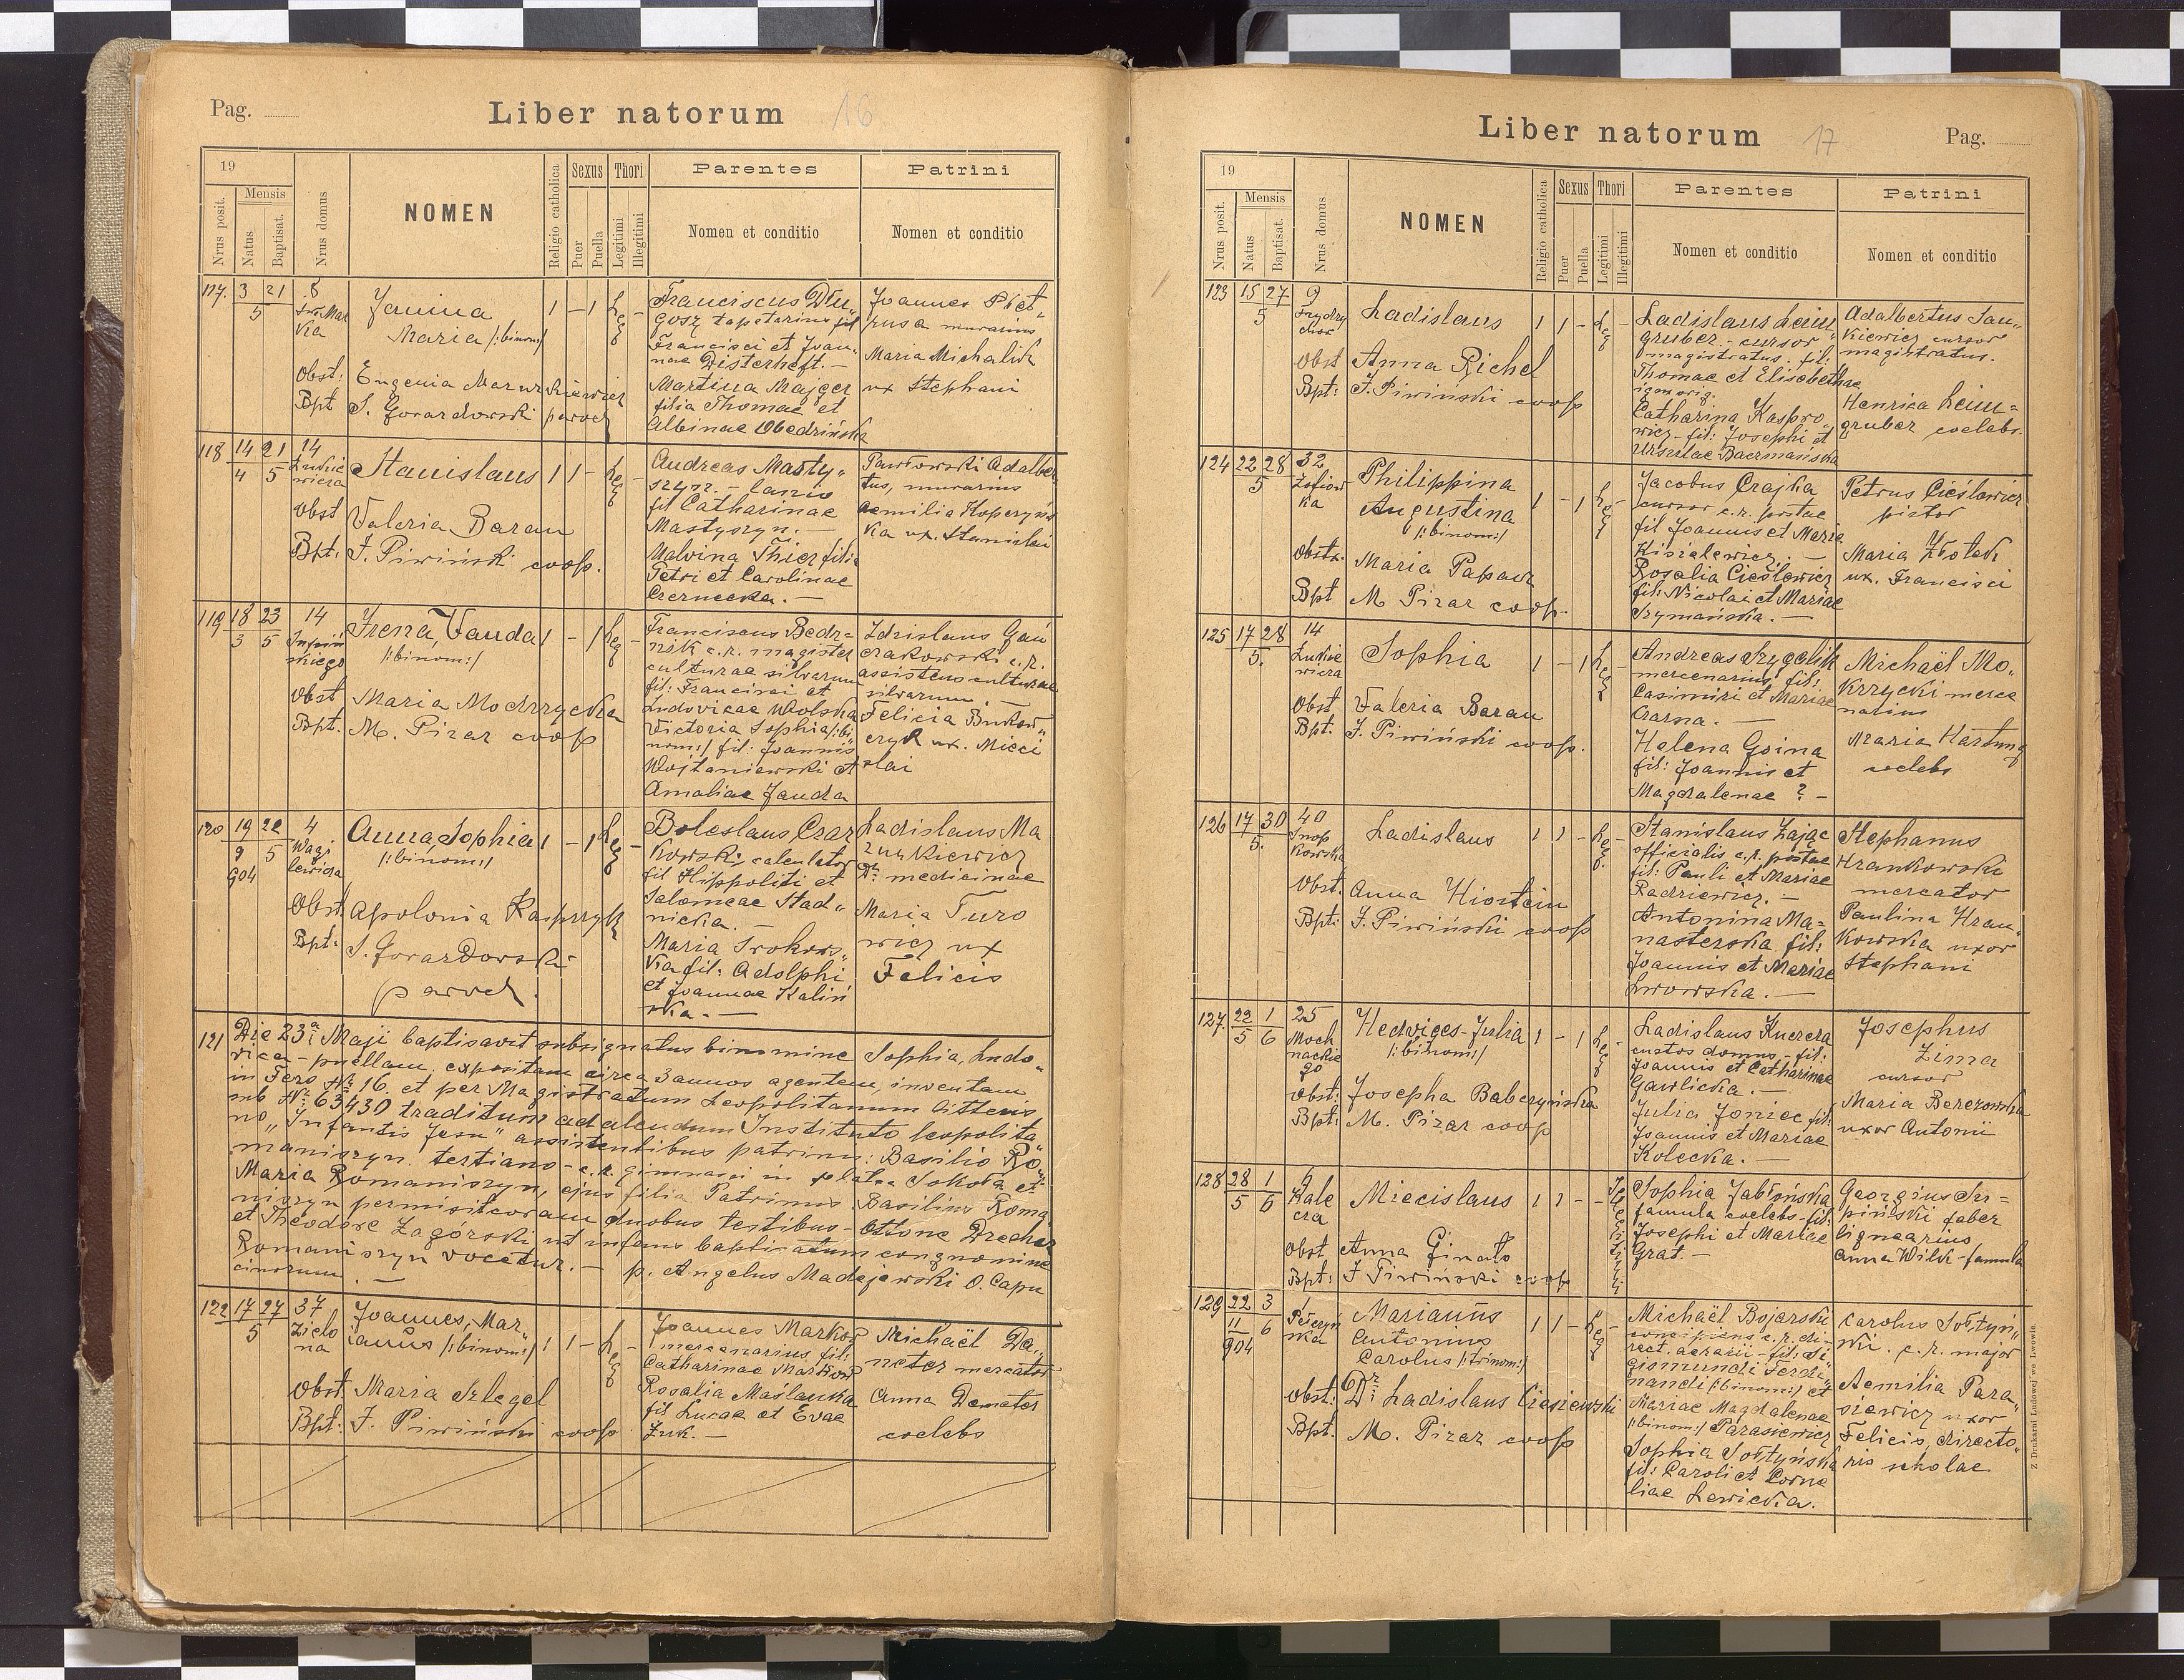 Pag.
Liber natorum 16
19
Mensis
Nrus posit.
Natus
Baptisat.
Nrus domus
NOMEN
Religio catholica
Sexus
Puer
Puella
Thori
Legitimi
Illegitimi
Parentes
Nomen et conditio
Patrini
Nomen et conditio
117. 3 21 8
5
Janina
Maria /:binom:/
1 – 1 Leg –
Obst: Eugenia
Bpt S. Gorardowski paroch
Franciscus Dłu„
gosz tapetarius fil
Francisci et Joan„
nae Disterheft. —
Martina Majger
filia Thomae et
Albinae Obedzińska
Joannes Piet„
rusa murarius
Maria Michalik
ux Stephani
118 14 21 14
4 5
Stanislaus 1 1 – Leg
Obst Valeria Baran
Bpt. J. Piwiński coop.
Andreas Masty„
szyn. – lanio
fil Catharinae
Mastyszyn. —
Malvina Thier filia
Petri et Carolinae
Czernecka. —
Pawłowski Adalber
tus, murarius
Aemilia Koperyńs
ka ux. Stanislai
119 18 23 14
3 5
Irena, Vanda 1 – 1 Leg –
/:binom:/
Obst Maria Modrzycka
Bpt. M. Pizar coop
Franciscus Bedr=
nik c.r. magister
culturae silvarum
fil: Francisci et
Ludovicae Wolska
Victoria Sophia /:bi„
nom:/ fil: Joannis
Wojtaniewski et
Amaliae Janda
Zdzislaus Gau
czakowski c.r.
assistens culturae
silvarum —
Felicia
ux. Mieci
slai
120 19 22 4
9 5
904
Anna, Sophia 1 – 1 Leg
/:binom:/
Obst. Apolonia Kasprzyk
Bpt: S. Gorardowski
paroch.
Boleslaus Czar
kowski, calculator
fil Hippoliti et
Salomeae Stad„
nicka. —
Maria Srokows„
ka fil: Adolphi
et Joannae Kaliń
ska. —
Ladislaus Ma
zurkiewicz
Dr. medicinae
Maria Turo
wicz ux
Felicis
121 Die 23a Maji baptisavit subsignatus binomine Sophia, Ludo„
vica – puellam expositam circa 3 annos agentem, inventam
in Foro No 16, et per Magistratum Leopolitanum litteris
sub No 63430 traditum ad alendum Instituto leopolita„
no „Infantis Jesu“ assistentibus patrinis: Basilio Ro„
maniszyn tertiano – c.r. gimnasii in platea Sokoła et
Maria Romaniszyn, ejus filia Patrinus Basilius Roma„
niszyn permisit coram duobus testibus – Ottone Drecher
et Theodore Zagórski ut infans baptisatum congnomine
Romaniszyn vocetur. — p. Angelus Madejewski O. Capu
cinorum. —
122 17 27 37
5 Zielo
na
Joannes, Mar„
ianus /:binom:/ 1 1 – Leg
Obst. Maria Szlegel
Bpt: J. Piwiński coop
Joannes Markow
mercenarius fil:
Catharinae Markow
Rosalia Maślanka
fil Lucae et Evae
Żuk. —
Michaël De„
meter mercator
Anna Demeter
coelebs
Liber natorum 17
Pag.
19
Mensis
Nrus posit.
Natus
Baptisat.
Nrus domus
NOMEN
Religio catholica
Sexus
Puer
Puella
Thori
Legitimi
Illegitimi
Parentes
Nomen et conditio
Patrini
Nomen et conditio
123 15 27 9
5
Ladislaus 1 1 – Leg –
Obst Anna Richel
Bpt: J. Piwiński coop
Ladislaus Leim„
gruber – cursor
magistratus. fil:
Thomae et Elisabethae
Catharina Kaspro„
wicz – fil: Josephi et
Urszulae Baermańska
Adalbertus San„
kiewicz cursor
magistratus.
Henrica Leim=
gruber coelebs.
124 22 28 32
5 Zofiow
ka
Philippina
Augustina 1 – 1 Leg
/:binom:/
Obstr. Maria Papasz
Bpt M. Pizar coop.
Jacobus Czajka
cursor c.r. postae
fil Joannis et Maria
Kiszelewicz. —
Rosalia Cieślewicz
fil: Nicolai et Mariae
Szymańska. —
Petrus Cieślewicz
pistor
Maria
ux. Francisci
125 17 28 14
5.
Sophia 1 – 1 Leg –
Obst. Valeria Baran
Bpt. J. Piwiński coop.
Andreas Szygelik
mercenarius, fil:
Casimiri et Mariae
Czarna. —
Helena Goina
fil: Joannis et
Magdalenae ? –
Michaël Mo„
krzycki merce
narius
Maria Hartung
coelebs
126 17 30 40
5. Snop
kowska
Ladislaus 1 1 – Leg. –
Obst. Anna Hiortein
Bpt: J. Piwiński coop
Stanislaus Zając
officialis c.r. postae
fil: Pauli et Mariae
Radziewicz. —
Antonina Ma=
nasterska fil:
Joannis et Mariae
Lwowska. —
Stephanus
Hrankowski
mercator
Paulina Hran„
kowska uxor
Stephani
127. 22 1 25
5 6 Moch
nackie
go
Hedviges-Julia 1 – 1 Leg –
/:binom:/
Obst: Josepha Babczyńska
Bpt: M. Pizar coop
Ladislaus Kucera
custos domus – fil:
Joannis et Catharinae
Gawlicka. —
Julia Joniec fil:
Joannis et Mariae
Kolecka. —
Josephus
Zima
cursor
Maria Berezowska
uxor Antonii
128 28 1 9
5 6 Kale
cza
Miecislaus 1 1 – – Illegitimi
Obst Anna Ginalo
Bpt: J Piwiński coop
Sophia Jabłońska
famula coelebs – fil:
Josephi et Mariae
Grat. —
Georgius Su=
piński faber
lignearius
Anna Wilk – famula
129 22 3
11 6 Pełczyń
904 ska
Marianus
Antonius 1 1 – Leg –
Carolus /:trinom:/
Obst: Dr. Ladislaus
Bpt. M. Pizar coop
Michaël Bojarski
concipiens c.r. di„
rect. aerarii – fil: Si
gismundi Ferdi„
nandi /:binom:/ et
Mariae Magdalenae
/:binom:/ Parasiewicz
Sophia Sołtyńska
fil: Caroli et Corne
liae Lewicka.
Carolus Sołtyń„
ski. c.r. major
Aemilia Para„
siewicz uxor
Felicis, directo„
ris scholae
Z Drukarni Ludowej we Lwowie.